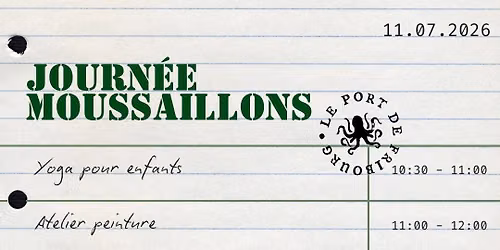 11.07.2026
JOURNÉE
MOUSSAILLONS
LE PORT DE FRIBOURG
Yoga pour enfants 10:30 - 11:00
Atelier peinture 11:00 - 12:00